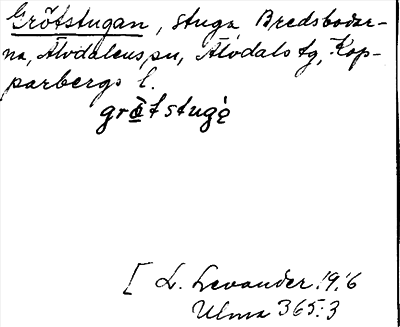 Grötstugan, stuga Bredsbodar-
na, Älvdalens sn, Älvdals tg, Kop-
parbergs l.
grötstugė
[ L. Levander 1916
Ulma 365:3